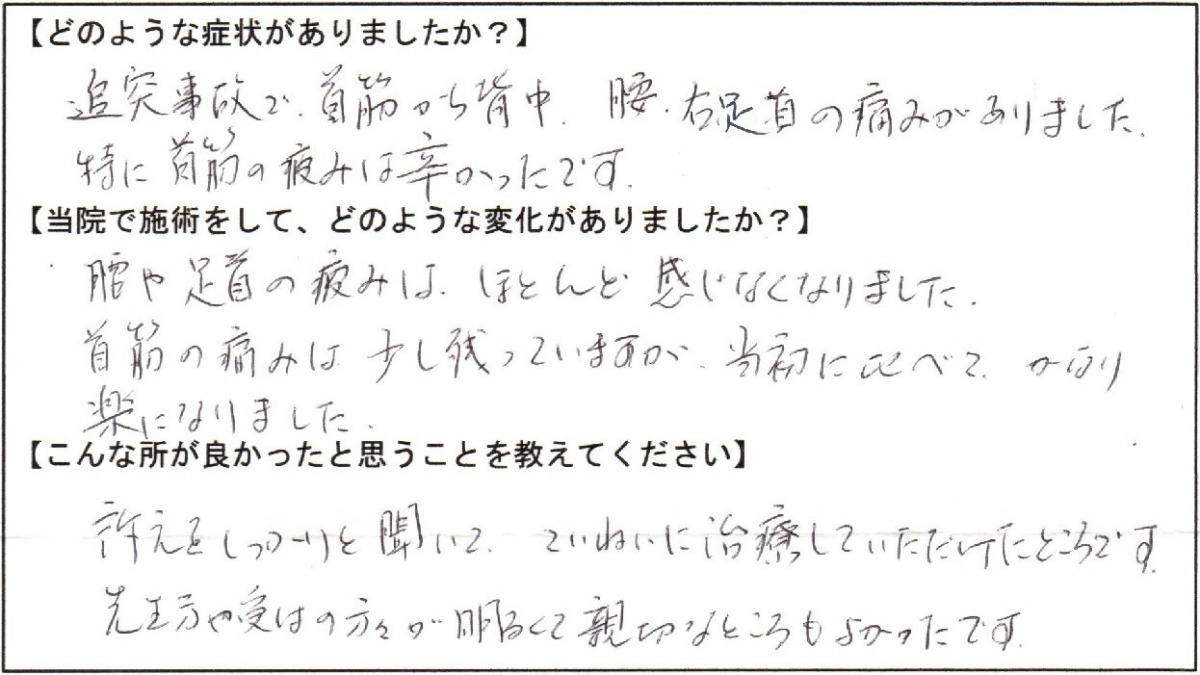 【どのような症状がありましたか？】
追突事故で、首筋から背中、腰、右足首の痛みがありました。
特に首筋の痛みは辛かったです。
【当院で施術をして、どのような変化がありましたか？】
腰や足首の痛みは、ほとんど感じなくなりました。
首筋の痛みは少し残っていますが、当初に比べて、かなり
楽になりました。
【こんな所が良かったと思うことを教えてください】
訴えをしっかりと聞いて、ていねいに治療していただけたところです。
先生方や受付の方々が明るくて親切なところもよかったです。